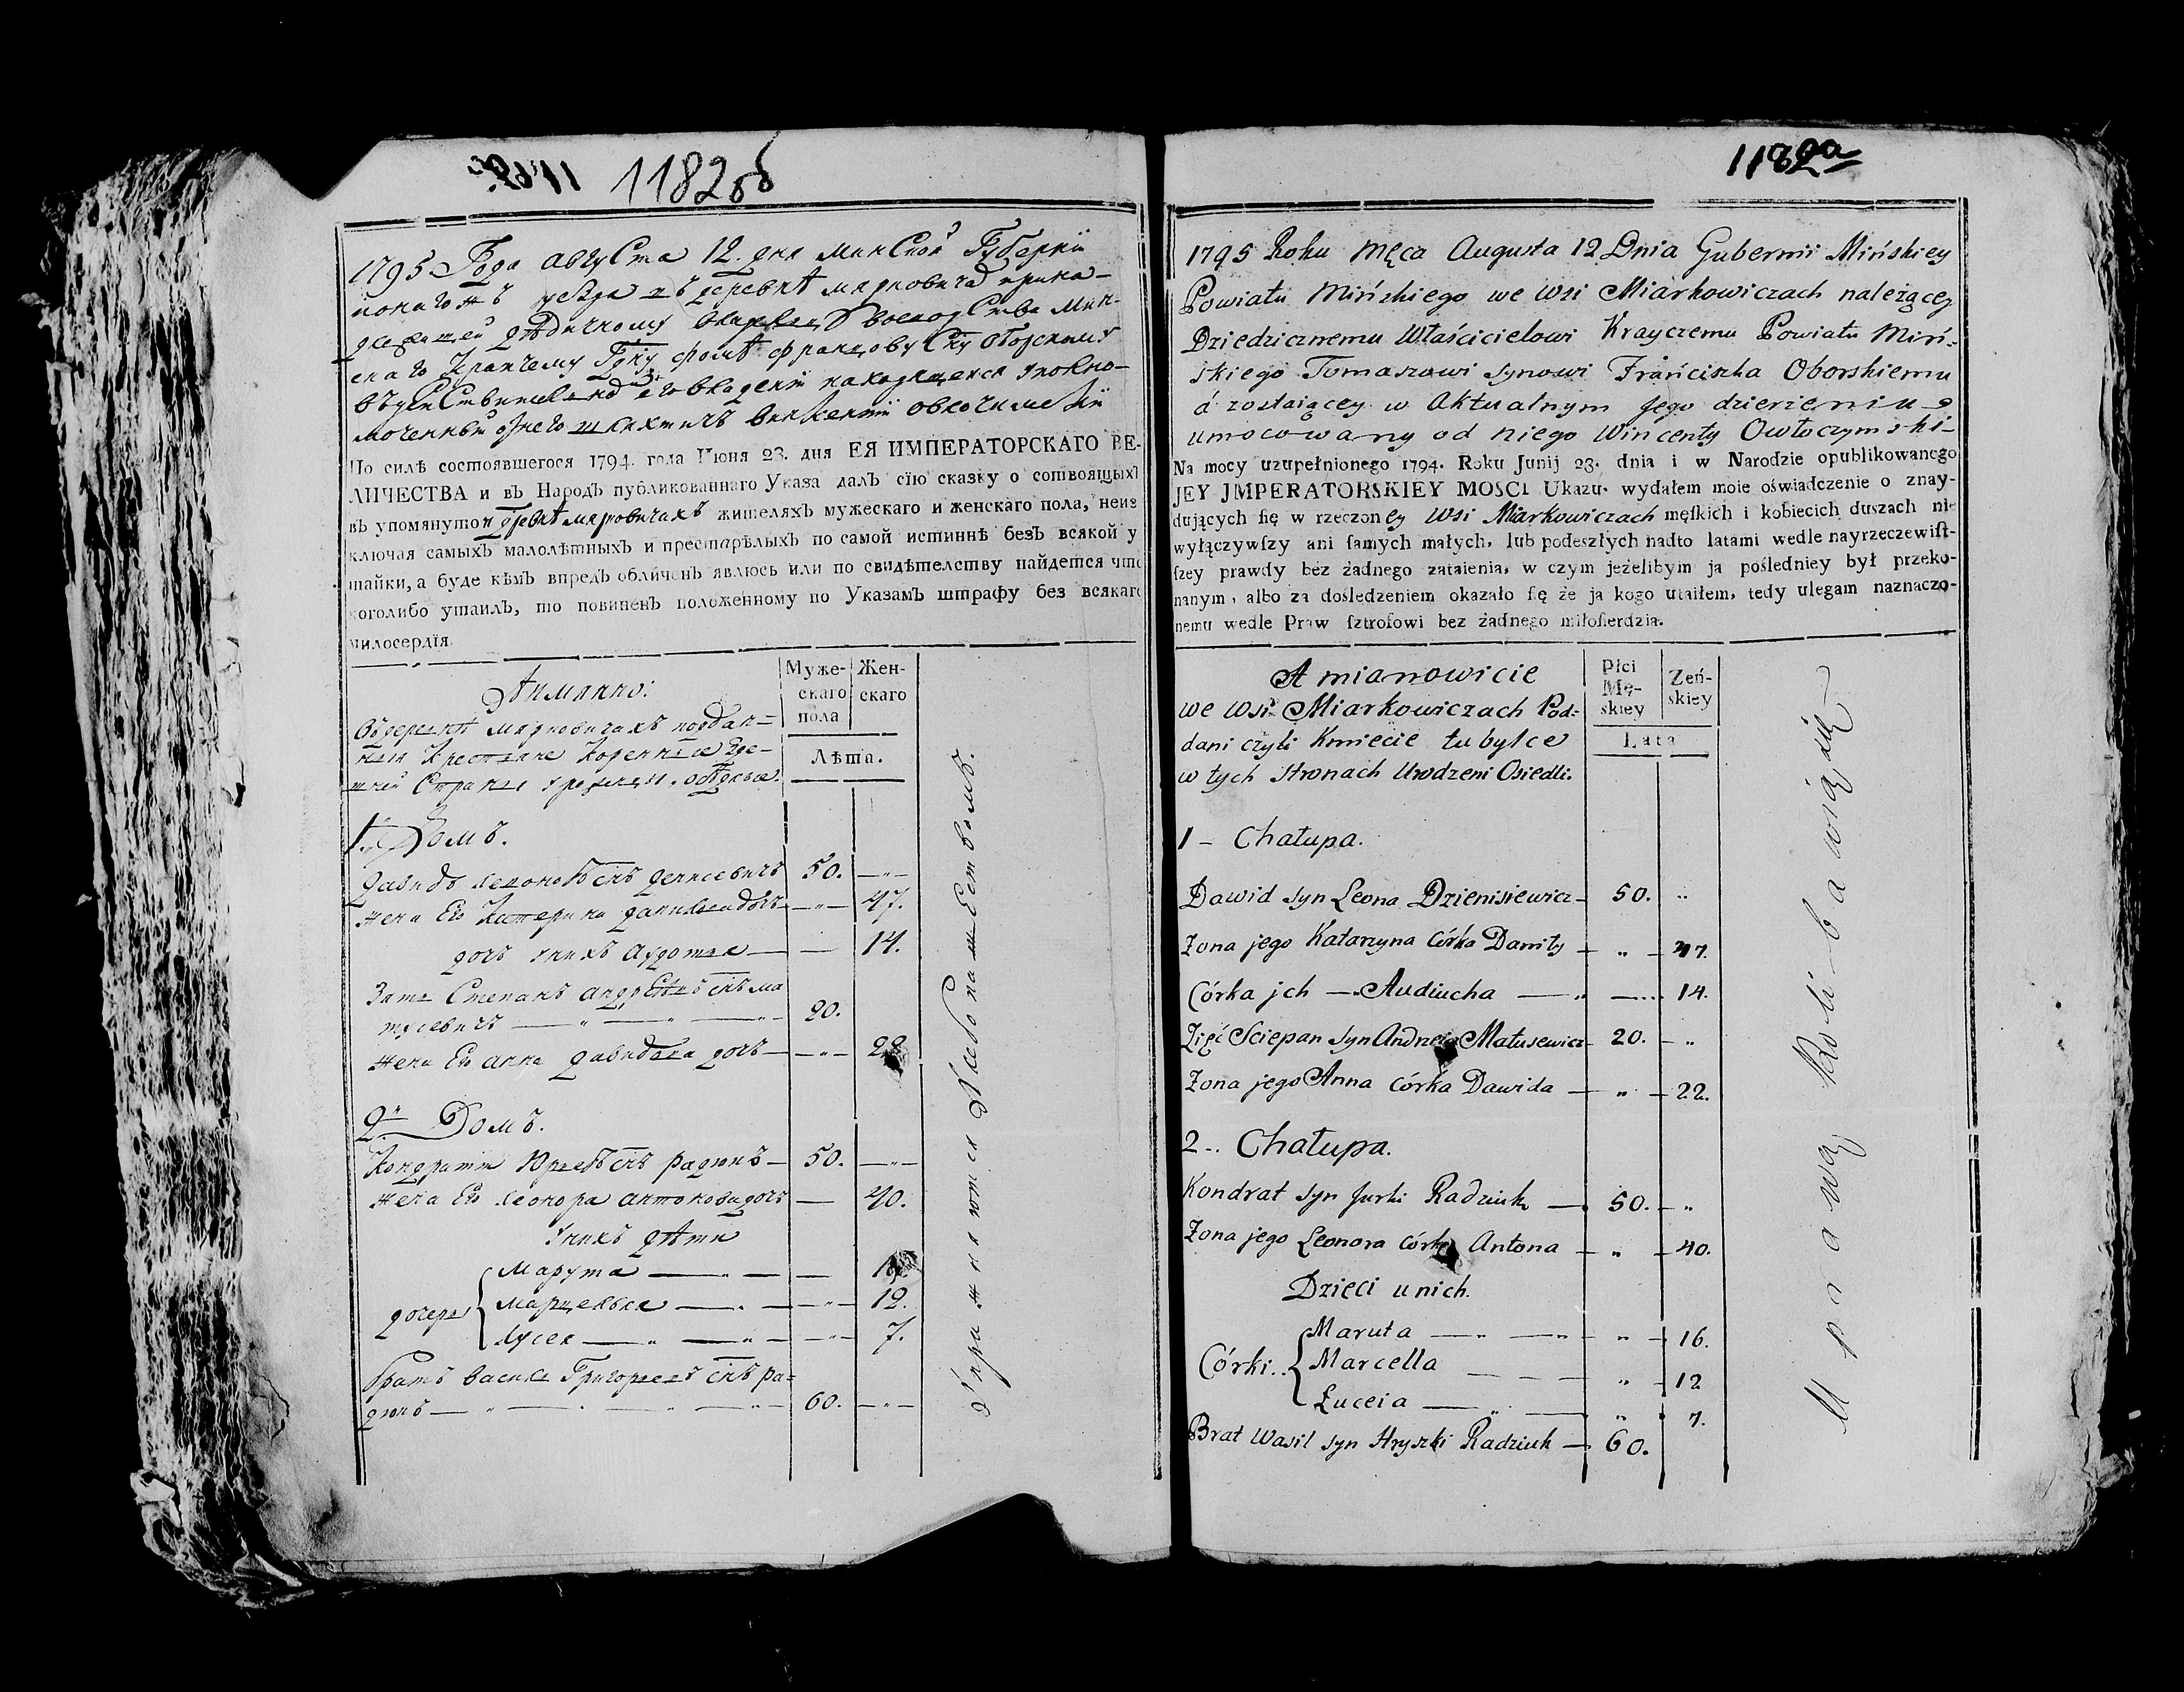 1182об
1795 Года августа 12. дня минской Губернїи
тогожъ уезда въ деревнѣ мярковичахъ прина-
длежащей дѣдичному воеводства Мин-
скаго Крайчему Гдну фомѣ францову сну оборскому
въ его владенїи находящейся уполно-
моченный отнего шляхтичъ викентїй овлочимскїй
По силѣ состоявшегося 1794. года Июня 23. дня ЕЯ ИМПЕРАТОРСКАГО ВЕ-
ЛИЧЕСТВА и въ Народъ публикованнаго Указа далъ сїю сказку о состоящыхъ
въ упомянутой древнѣ мярковичахъ жителяхъ мужескаго и женскаго пола, неиз
ключая самыхъ малолѣтныхъ и престарѣлыхъ по самой истиннѣ безъ всякой у
тайки, а буде кѣмъ впредь обличенъ явлюсь или по свидѣтелству найдется что
коголибо утаилъ, то повиненъ положенному по Указамъ штрафу без всякаго
милосердїя.
Аимянно:
Муже-
скаго
пола
Жен-
скаго
Лѣта.
въдеревнѣ мярковичахъ поддан-
ныя Крестьяне Коренные зде-
шней Страны урожен. оседлые.
1. Домъ.
давидъ леоновъ снъ денисевичъ 50.
жена Его Катерина данилова дочь 47.
дочь унихъ аудотья 14.
Зять Степанъ андреевъ снъ ма
тусевичъ 20.
жена Его анна давидова дочь 22
2. Домъ.
Кондратъ Юрьевъ снъ радюкъ 50.
жена Его леонора антонова дочь 40.
Унихъ дѣти
дочери
марута 16.
марцелья 12.
луcея 7.
братъ василь Григорьевъ снъ ра=
дюкъ 60.
Упражняются Хлебопашеством.
1182a
1795 Roku Męca Augusta 12 Dnia Gubernii Mińskiey
Powiatu Mińskiego we Wsi Miarkowiczach należącey
Dziedzicznemu Właścicielowi Krayczemu Powiatu Miń-
skiego Tomaszowi synowi Frańciszka Oborskiemu
a zostaiącey w Aktualnym Jego dzierzeniu
umocowany od niego Wincenty Owłoczymski
Na mocy uzupełnionego 1794. Roku Junij 23. dnia i w Narodzie opublikowanego
JEY JMPERATORSKIEY MOSCI Ukazu. wydałem moie oświadczenie o znay-
dujących ſię w rzeczoney Wsi Miarkowiczach męſkich i kobiecich duszach nie
wyłączywſzy ani ſamych małych, lub podeszłych nadto latami wedle nayrzeczewiſt-
ſzey prawdy bez żadnego zataienia, w czym jeżelibym ja pośledniey był przeko-
nanym, albo za dośledzeniem okazało ſię że ja kogo utaiłem, tedy ulegam naznaczo-
nemu wedle Praw ſztrofowi bez żadnego miłoſierdzia.
A mianowicie
Płci
Mę-
skiey
Zeń-
skiey
Lata
we Wsi Miarkowiczach Pod-
dani czyli Kmiecie tu bylce
w tych Stronach Urodzeni Osiedli.
1 – Chałupa.
Dawid syn Leona Dzienisiewicz 50.
Zona jego Katarzyna Córka Daniły 47.
Córka jch Audiucha 14.
Zięć Sciepan syn Andrzeia Matusewicz 20.
Zona jego Anna Córka Dawida 22.
2. Chałupa.
Kondrat syn Jurki Radziuk 50.
Zona jego Leonora córka Antona 40.
Dzieci u nich.
Córki
Maruta 16.
Marcella 12
Łuceia 7.
Brat Wasil syn Hryszki Radziuk 60.
Uprawą Roli bawią się